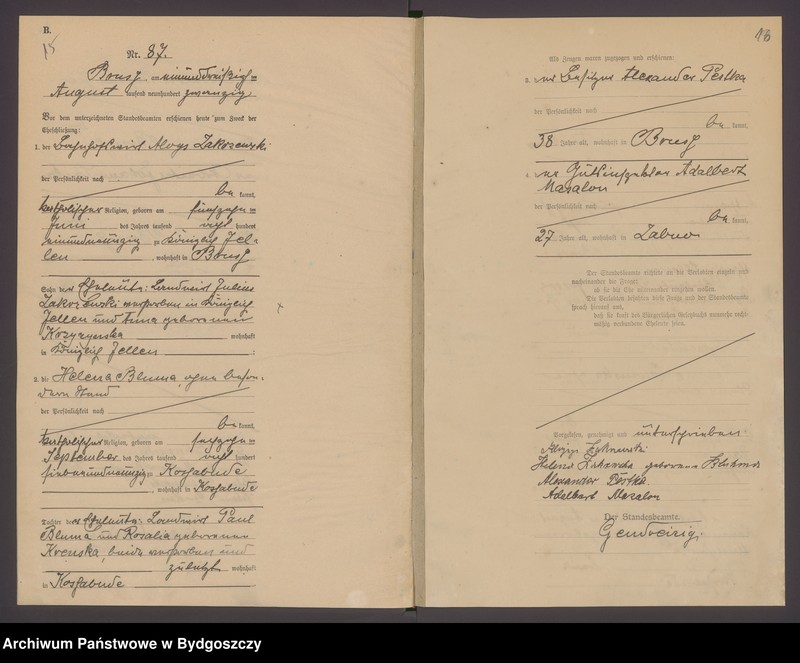 B.
15
Nr. 87.
Brusz, am einunddreißig=
August tausend neunhundert zwanzig.
Vor dem unterzeichneten Standesbeamten erschienen heute zum Zweck der
Eheschließung:
1. der Bahnhofswirt Aloys Zakrzewski
der Persönlichkeit nach
be kannt,
katholischer Religion, geboren am fünfzehn=
Juni des Jahres tausend acht hundert
einundneunzig zu Königlich Jel=
len, wohnhaft in Brusz
Sohn der Eheleute: Landwirt Julius
Zakrzewski verstorben in Königlich
Jellen und Anna geborenen
wohnhaft
in Königlich Jellen
2. die Helena Bluma, ohne beson=
dern Stand
der Persönlichkeit nach
be kannt,
katholischer Religion, geboren am sechzehn=
September des Jahres tausend acht hundert
siebenundneunzig zu Kosabude
, wohnhaft in Kosabude
Tochter der Eheleute: Landwirt Paul
Bluma und Rosalia geborenen
beide verstorben und
zuletzt wohnhaft
in Kosabude
16
Als Zeugen waren zugezogen und erschienen:
3. der Besitzer Alexander Pestka
der Persönlichkeit nach
be kannt,
38 Jahre alt, wohnhaft in Brusz
4. der Gutsinspektor Adalbert
Mazalon
der Persönlichkeit nach
be kannt,
27 Jahre alt, wohnhaft in Zabno
Der Standesbeamte richtete an die Verlobten einzeln und
nacheinander die Frage:
ob sie die Ehe miteinander eingehen wollen.
Die Verlobten bejahten diese Frage und der Standesbeamte
sprach hierauf aus,
daß sie kraft des Bürgerlichen Gesetzbuchs nunmehr recht=
mäßig verbundene Eheleute seien.
Vorgelesen, genehmigt und unterschrieben
Zakrzewski
Helena Zakrzewska geborene Bluma
Alexander Pestka
Adalbert Mazalon
Der Standesbeamte.
Archiwum Państwowe w Bydgoszczy